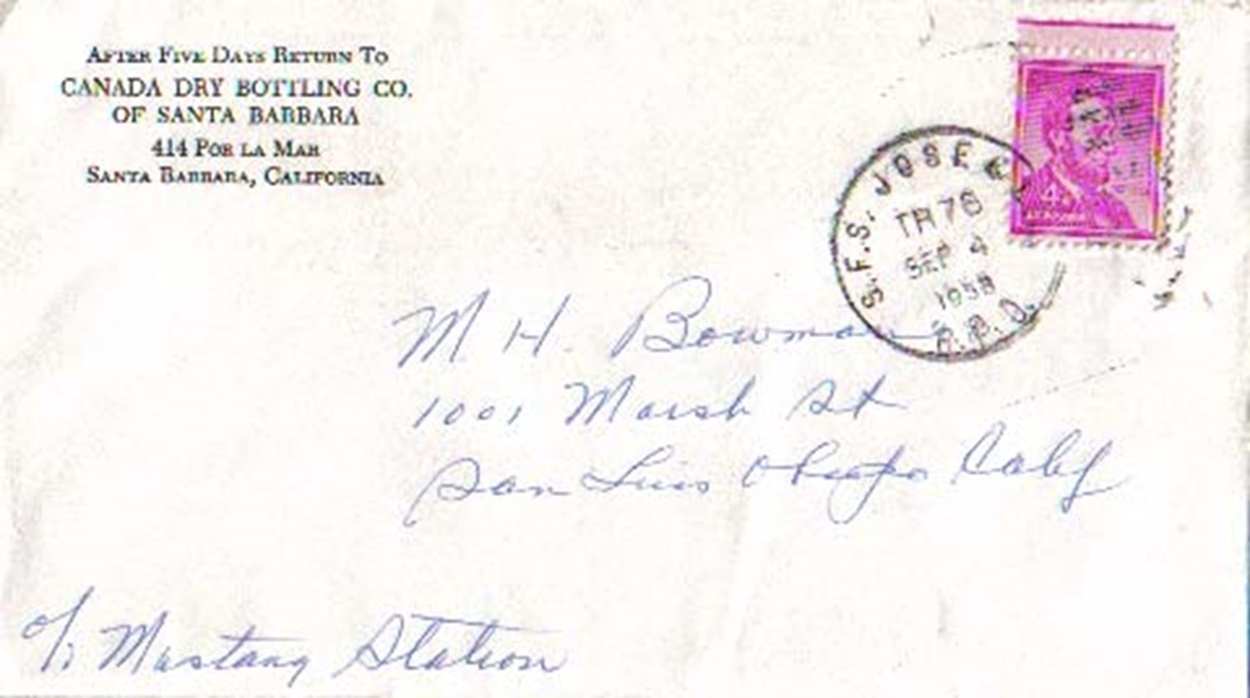 After Five Days Return To
CANADA DRY BOTTLING CO.
OF SANTA BARBARA
414 Por la Mar
Santa Barbara, California
S.F.S. JOSE &
TR 76
SEP 4
1958
R.P.O.
4¢
M. H. Bowman
1001 Marsh St
San Luis Obispo Calif
c/o Mustang Station